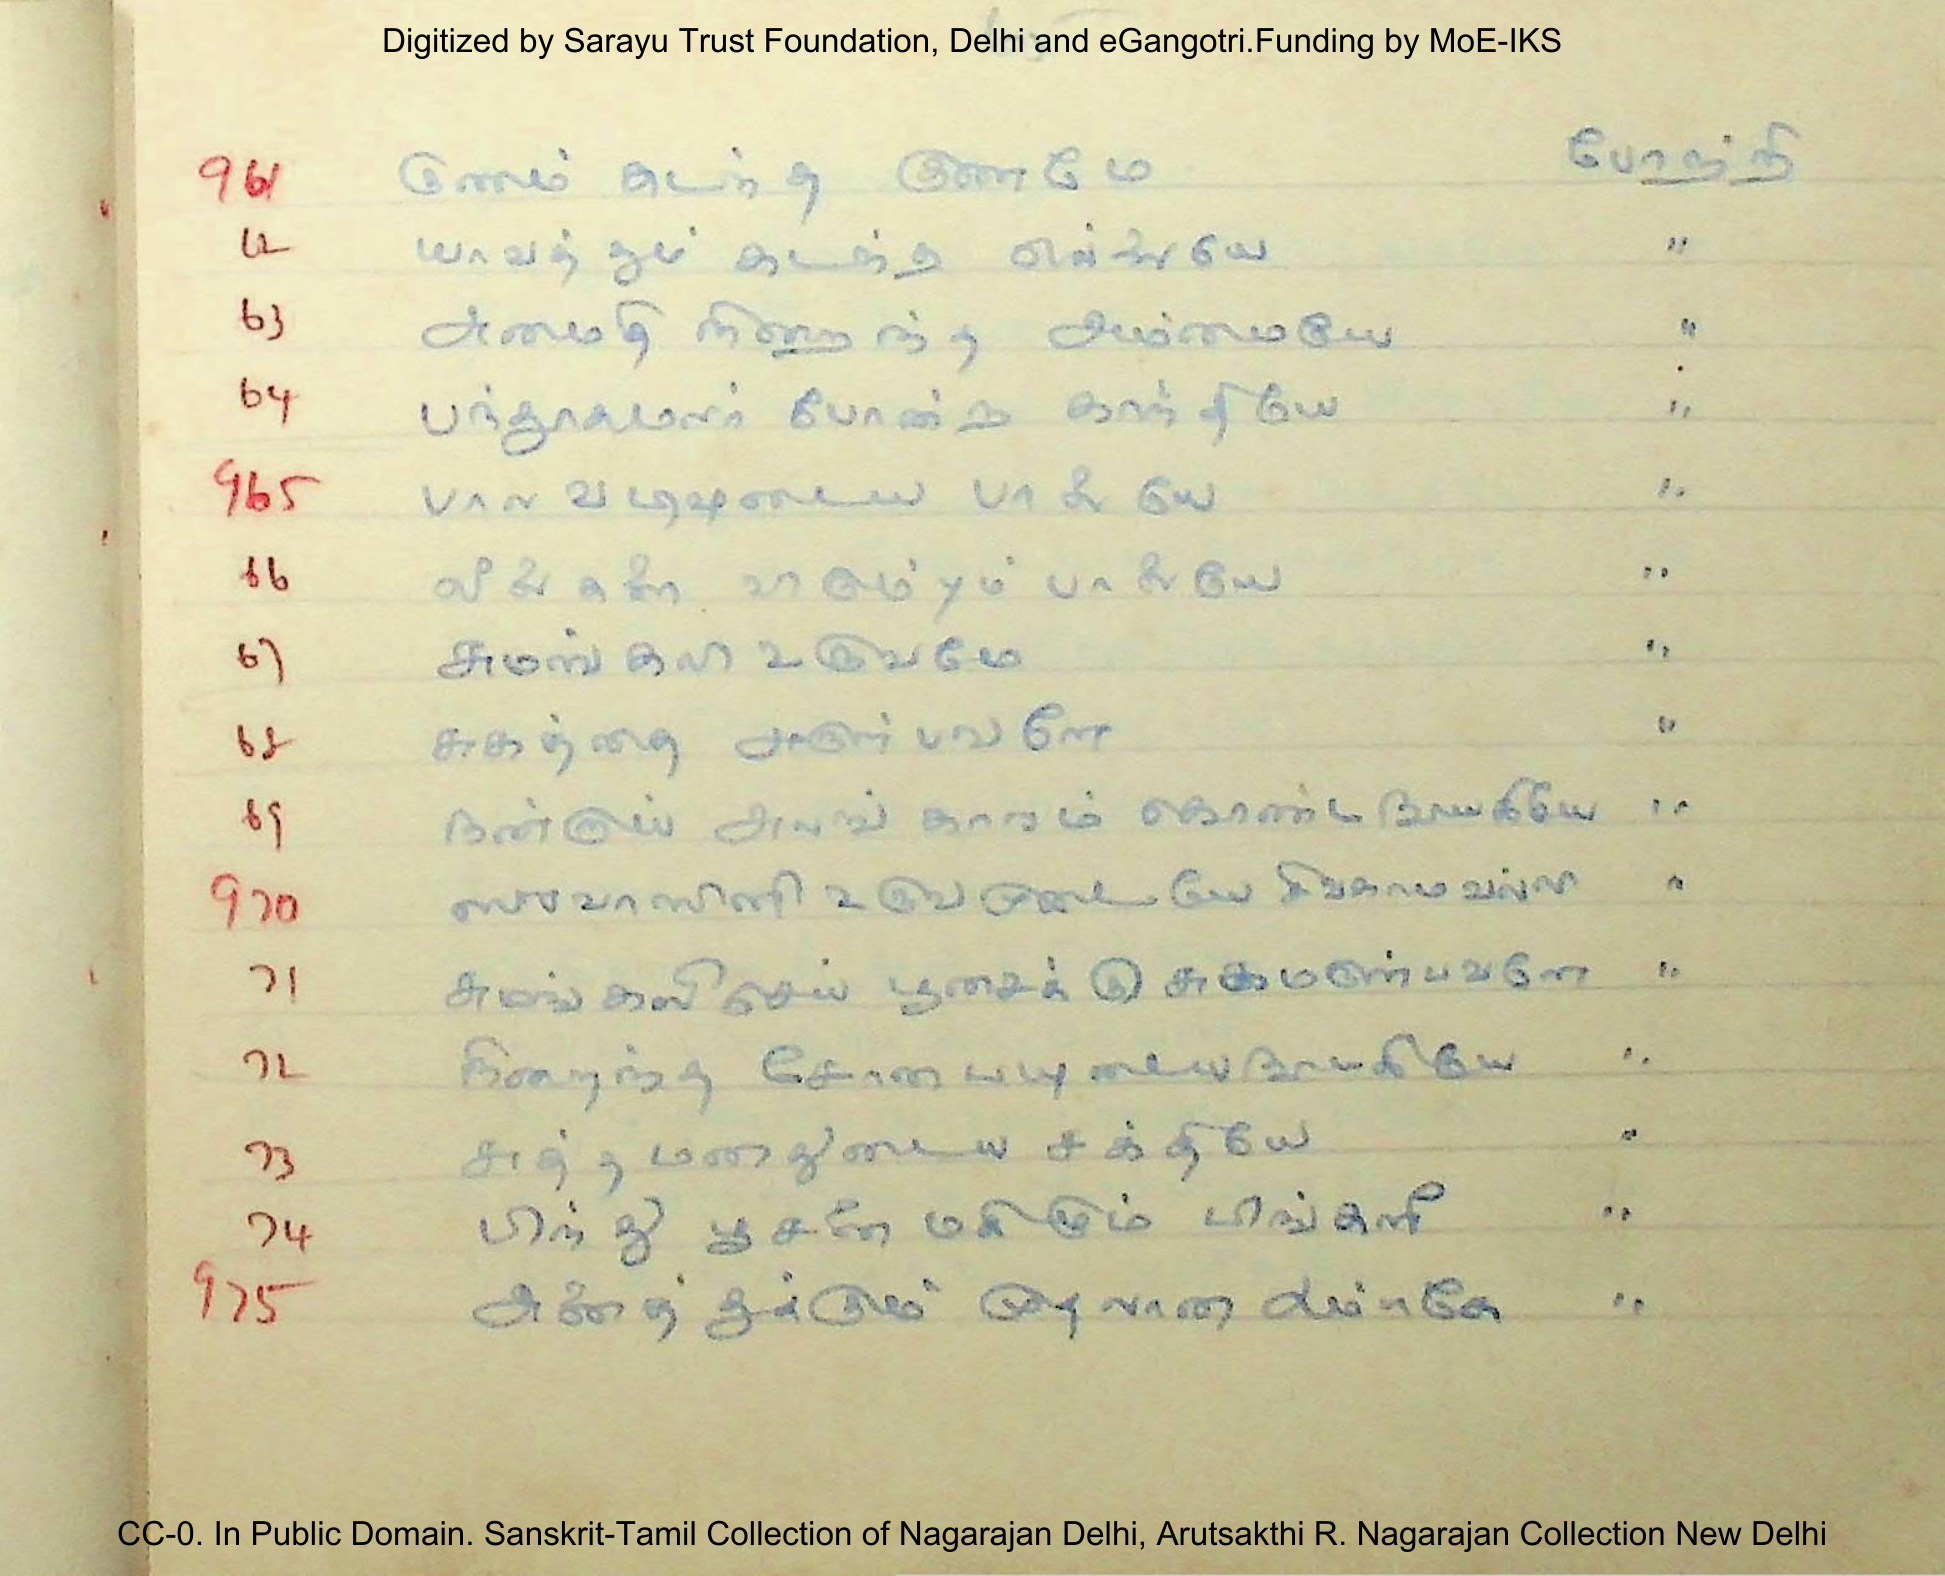 Digitized by Sarayu Trust Foundation, Delhi and eGangotri.Funding by MoE-IKS
961 குணம் கடந்த குணமே போற்றி
62 யாவத்தும் கடந்த "
63 அமைதி நிறைந்த அம்மையே "
64 பந்தூகமலர் போன்ற காந்தியே "
965 பால வடிவுடைய "
66 "
67 சுமங்கலி உருவமே "
68 சுகத்தை அருள்பவளே "
69 அலங்காரம் கொண்ட நாயகியே "
970 ஸுவாஸினி உருவமுடையே சிவகாமவல்லி "
71 சுமங்கலி செய் பூசைக்கு சுகமருள்பவளே "
72 நிறைந்த நாயகியே "
73 சுத்த மனதுடைய சக்தியே "
74 பிந்து பூசனை மகிழும் பிங்களி "
975 அனைத்துக்கும் முதலான அம்பிகே "
CC-0. In Public Domain. Sanskrit-Tamil Collection of Nagarajan Delhi, Arutsakthi R. Nagarajan Collection New Delhi